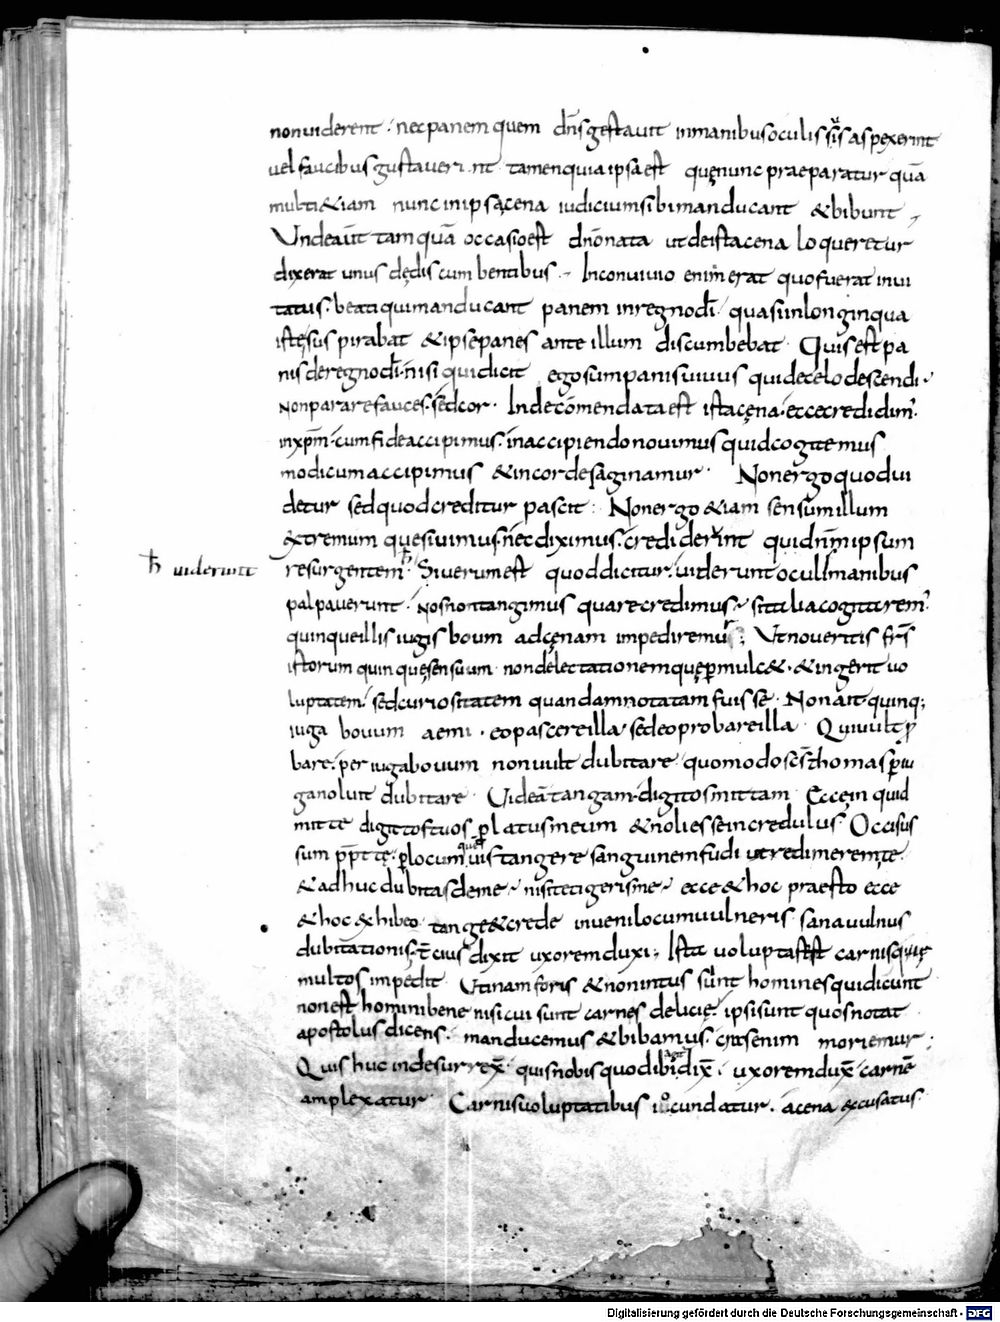 non uiderent · nec panem quem dn̄s gestauit in manibus oculis sīs aspexerint
uel faucibus gustauerint tamen quia ipsa est quę nunc praeparatur quā
multi &iam nunc in ipsa cena iudicium sibi manducant & bibunt
Unde aūt tamquā occasio est dn̄o nata ut de ista cena loqueretur
dixerat unus dę discumbentibus · In conuiuio enim erat quo fuerat inui
tatus · beati qui manducant panem in regno dī · quasi in longinqua
iste suspirabat & ipse panes ante illum discumbebat · Quis est pa
nis de regno dī · nisi qui dicit ego sum panis uiuus qui de celo descendi ·
Non parare fauces · sed cor · Inde cōmendata est ista cęna · ecce credidim̄
in xp̄m · cum fide accipimus · in accipiendo nouimus quid cogitemus
modicum accipimus & in corde saginamur · Non ergo quod ui
detur sed quod creditur pascit · Non ergo &iam sensum illum
extremum quesiuimus · nec diximus · crediderunt quid nr̄m ipsum
resurgentem · Si uerum est quod dicitur · uiderunt oculi manibus
ħ uiderunt
palpauerunt · nos non tangimus quare credimus · si talia cogitarem̄
quinque illis iugis boum ad cęnam impediremur · Ut noueritis frs̄
istorum quinque sensuum non delectationem quę ꝑmulc& · & ingerit uo
luptatem · sed curiositatem quandam notatam fuisse · Non ait quinq;
iuga bouum aemi · eo pascere illa · sed eo probare illa · Qui uult ꝓ
bare · per iuga bouum non uult dubitare · quomodo scs̄ thomas ꝑ iu
ga noluit dubitare · Uideā tangam digitos mittam · Ecce in quid
mitte digitos tuos ꝑ latus meum & noli esse incredulus · Occisus
sum pp̄t te · ꝑ locum quē uis tangere sanguinem fudi ut redimerem te ·
& adhuc dubitas de me · nisi tetigeris me · ecce & hoc praesto ecce
& hoc exhibeo · tange & crede inueni locum uulneris sana uulnus
dubitationis · tercius dixit uxorem duxi · Ista uoluptas est carnis quę
multos impedit Utinam foris & non intus sunt homines qui dicunt
non est homini bene nisi cui sunt carnes delicię · ipsi sunt quos notat
apostolus dicens · manducemus & bibamus · cras enim moriemur ·
Quis huc inde surrex̄ · quis nobis quod ibi agit dix̄ · uxorem dux̄ carnē
amplexatur · Carnis uoluptatibus iocundatur · a cena excusatus ·